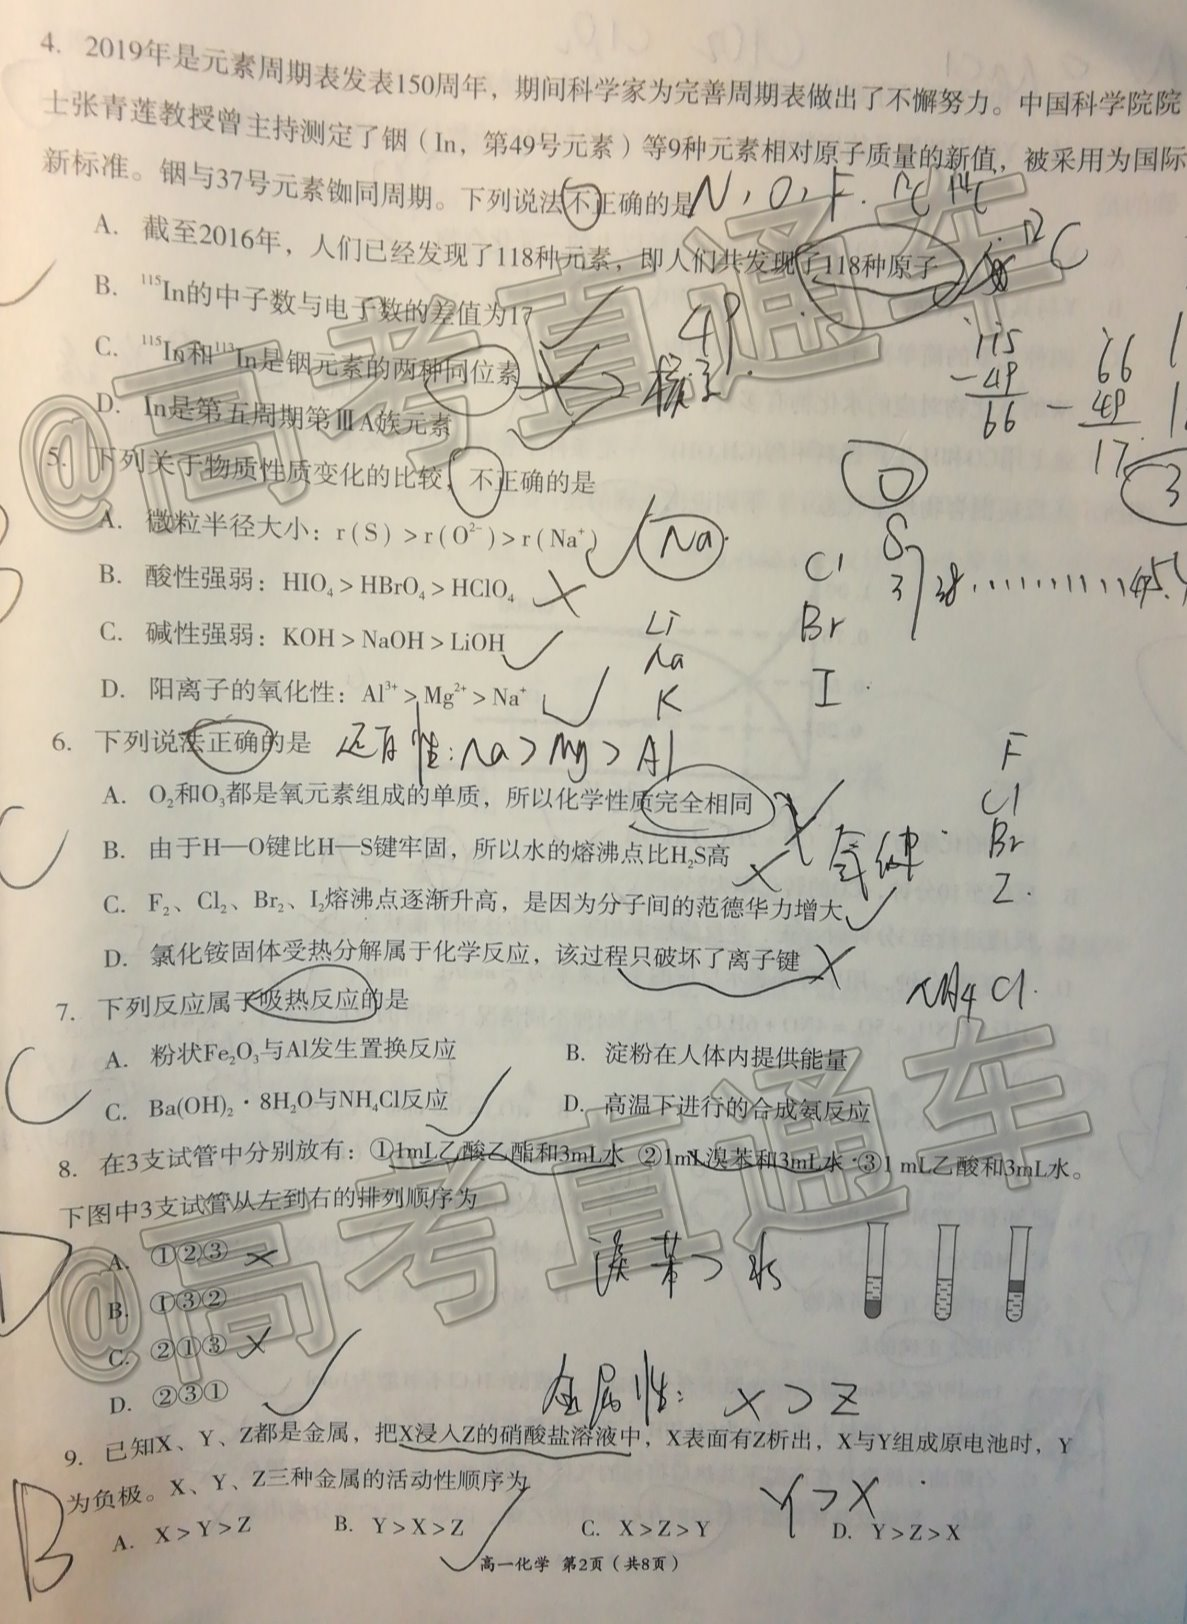 4. 2019年是元素周期表发表150周年，期间科学家为完善周期表做出了不懈努力。中国科学院院
士张青莲教授曾主持测定了铟（In，第49号元素）等9种元素相对原子质量的新值，被采用为国际
新标准。铟与37号元素铷同周期。下列说法不正确的是 N，O，F. ¹²C ¹⁴C
A. 截至2016年，人们已经发现了118种元素，即人们共发现了118种原子 ¹²C
B. ¹¹⁵In的中子数与电子数的差值为17 49
C. ¹¹⁵In和¹¹³In是铟元素的两种同位素 核素
115
-49
66
66
-49
17
D. In是第五周期第ⅢA族元素
5. 下列关于物质性质变化的比较，不正确的是 O
A. 微粒半径大小：r(S)>r(O²⁻)>r(Na⁺) Na S
B. 酸性强弱：HIO₄>HBrO₄>HClO₄ Cl
C. 碱性强弱：KOH>NaOH>LiOH Li Na Br
D. 阳离子的氧化性：Al³⁺>Mg²⁺>Na⁺ K I
6. 下列说法正确的是 还原性：Na>Mg>Al F
A. O₂和O₃都是氧元素组成的单质，所以化学性质完全相同 Cl
B. 由于H—O键比H—S键牢固，所以水的熔沸点比H₂S高 氢键 Br
C. F₂、Cl₂、Br₂、I₂熔沸点逐渐升高，是因为分子间的范德华力增大 I
D. 氯化铵固体受热分解属于化学反应，该过程只破坏了离子键
NH₄Cl.
7. 下列反应属于吸热反应的是
C
A. 粉状Fe₂O₃与Al发生置换反应 B. 淀粉在人体内提供能量
C. Ba(OH)₂·8H₂O与NH₄Cl反应 D. 高温下进行的合成氨反应
8. 在3支试管中分别放有：①1mL乙酸乙酯和3mL水 ②1mL溴苯和3mL水 ③1 mL乙酸和3mL水。
下图中3支试管从左到右的排列顺序为
D
A. ①②③ 溴苯>水
B. ①③②
C. ②①③
D. ②③① 金属性：X>Z
9. 已知X、Y、Z都是金属，把X浸入Z的硝酸盐溶液中，X表面有Z析出，X与Y组成原电池时，Y
为负极。X、Y、Z三种金属的活动性顺序为 Y>X
B
A. X>Y>Z B. Y>X>Z C. X>Z>Y D. Y>Z>X
高一化学 第2页（共8页）
@高考直通车
@高考直通车